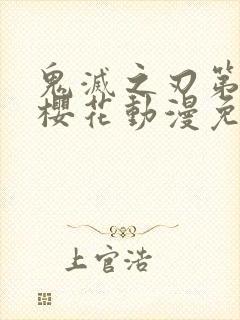 鬼滅之刃第
櫻花動漫免
上官浩